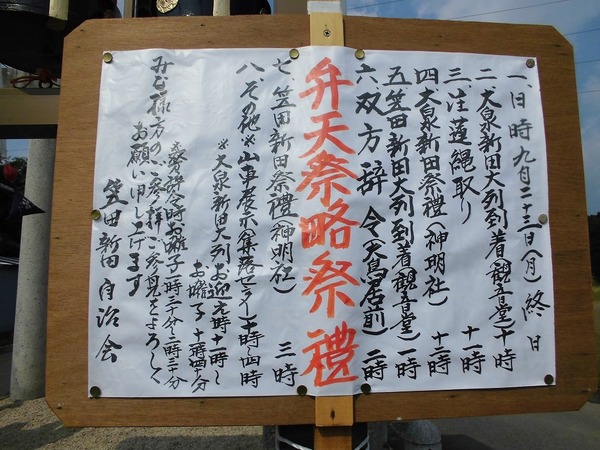 一、日時 九月二十三日(月)終日
二、大泉新田大列到着(観音堂)十時
三、注蓮縄取り 十一時
四、大泉新田祭禮(神明社) 十二時
五、笠田新田大列到着(観音堂)一時
六、双方辞令(大鳥居前) 二時
弁天祭略祭禮
七、笠田新田祭禮(神明社) 三時
八、その他※山車展示(集落センター)十時~四時
※大泉新田大列お迎え九時~十時
お囃子 十時四十分
辞令時お囃子一時三十分~二時二十分
みな様方のご参拝ご参見をよろしく
お願い申し上げます
笠田新田自治会